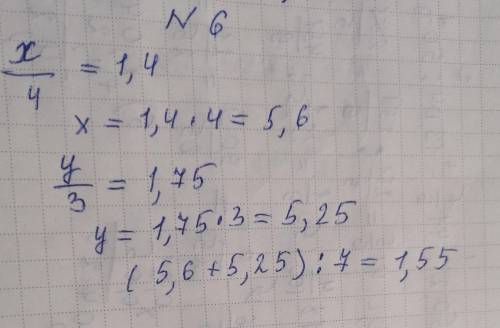 N 6
x/4 = 1,4
x = 1,4 · 4 = 5,6
y/3 = 1,75
y = 1,75 · 3 = 5,25
(5,6 + 5,25) : 7 = 1,55